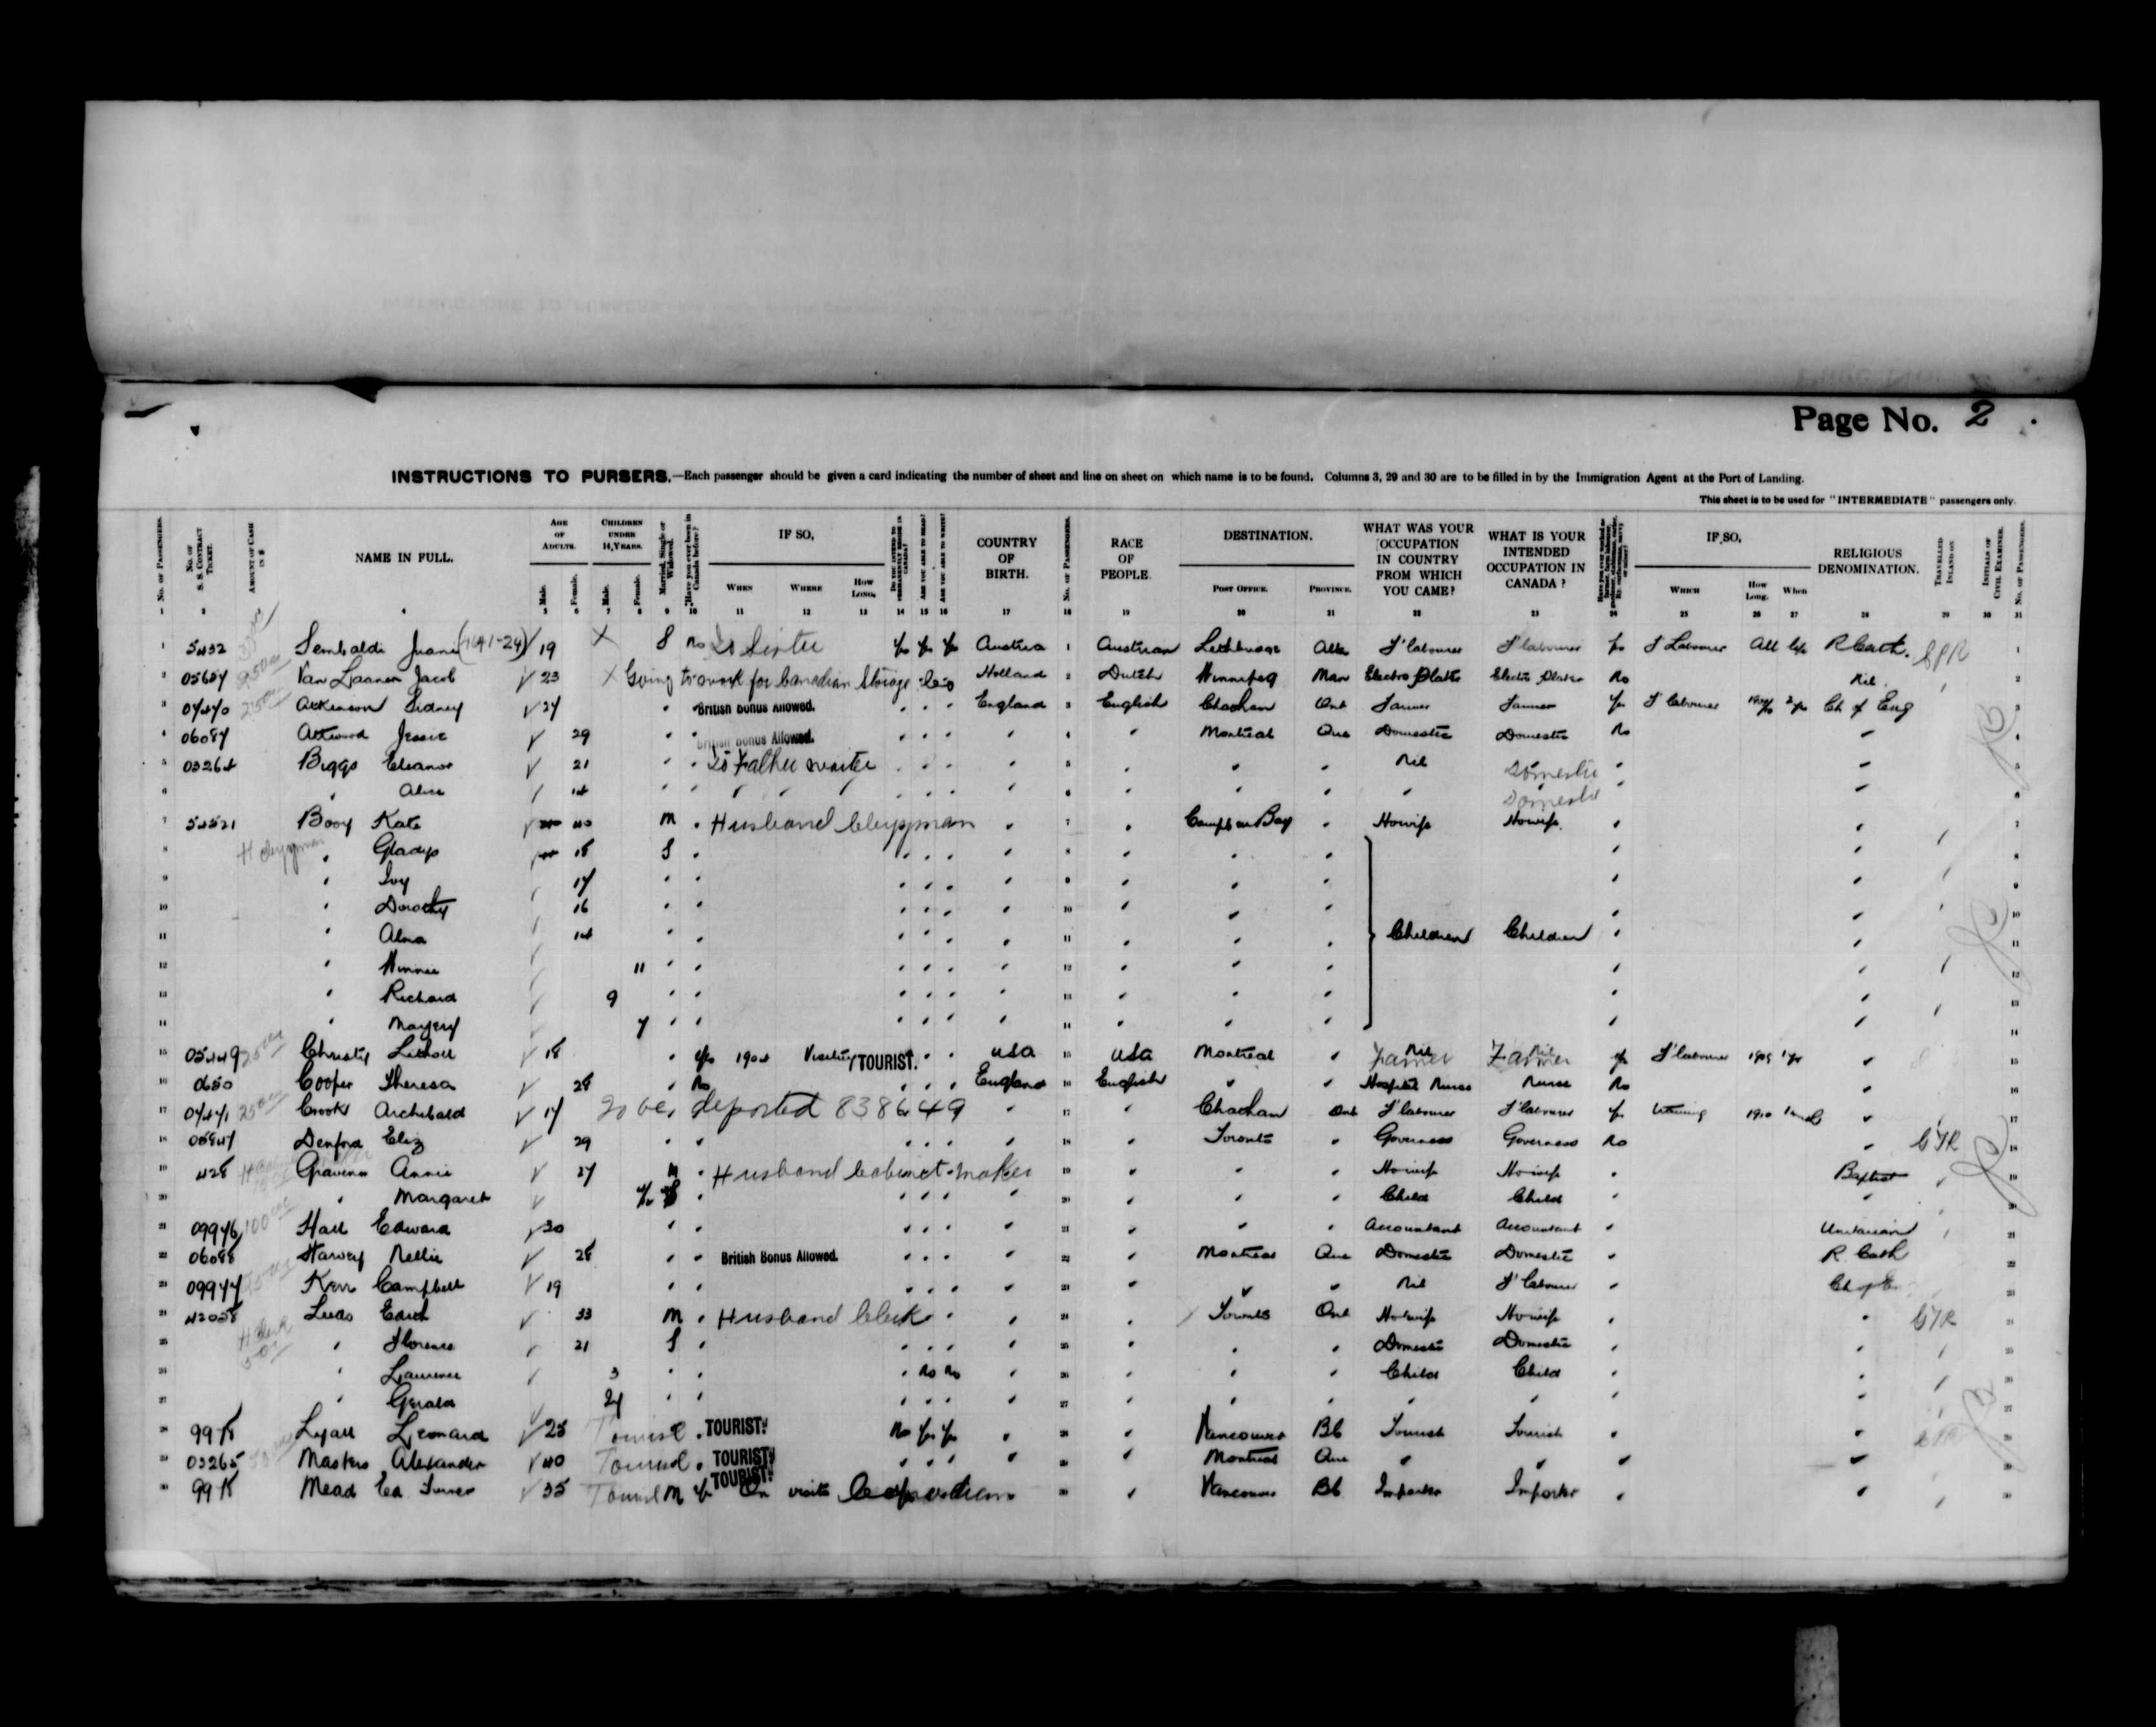 Page No. 2
INSTRUCTIONS TO PURSERS.—Each passenger should be given a card indicating the number of sheet and line on sheet on which name is to be found. Columns 3, 29 and 30 are to be filled in by the Immigration Agent at the Port of Landing.
This sheet is to be used for "INTERMEDIATE" passengers only.
No. of Passengers. No. of S. S. Contract Ticket. Amount of Cash in $ NAME IN FULL. Age of Adults. Male. Female. Children under 14 Years. Male. Female. Married, Single or Widowed. Have you ever been in Canada before? IF SO, When Where How Long. Do you intend to permanently reside in Canada? Are you able to read? Are you able to write? COUNTRY OF BIRTH. No. of Passengers. RACE OF PEOPLE. DESTINATION. Post Office. Province. WHAT WAS YOUR OCCUPATION IN COUNTRY FROM WHICH YOU CAME? WHAT IS YOUR INTENDED OCCUPATION IN CANADA? IF SO, Which How Long. When RELIGIOUS DENOMINATION. Travelled Inland on Initials of Civil Examiner. No. of Passengers.
1 2 4 5 6 7 8 9 10 11 12 13 14 15 16 17 18 19 20 21 22 23 24 25 26 27 28 29 30 31
1 5432 19 X S no To Sister yes yes yes Austria 1 Austrian Lethbridge Alta F' labourer F' labourer yes F Labourer All life R Cath. CPR 1
2 Van Laanen Jacob 23 X Going to work for Canadian Storage Co Holland 2 Dutch Winnipeg Man Electro Plater Electro Plater No Nil 2
3 Atkinson Sidney 27 " British Bonus Allowed. " " " England 3 English Chatham Ont Farmer Farmer yes F' labourer 2 yrs Ch of Eng 3
4 06087 Attwood Jessie 29 " " British Bonus Allowed. " " " " 4 " Montreal Que Domestic Domestic No " 4
5 03264 Biggs Eleanor 21 " " To Father waiter " " " " 5 " " " Nil Domestic " " 5
6 " Alice 14 " " " " " " " " " 6 " " " " Domestic " " 6
7 54521 Booy Kate 40 M " Husband Clergyman " 7 " Campbell Bay " Howife Howife " " " 7
8 H Clergyman " Gladys 18 S " " " " " 8 " " " " " 8
9 " Ivy 17 " " " " " " 9 " " " " " " 9
10 " Dorothy 16 " " " " " " 10 " " " " " " 10
11 " Alma 14 " " " " " " 11 " " " Children Children " " 11
12 " Winnie 11 " " " " " " 12 " " " " " " 12
13 " Richard 9 " " " " " " 13 " " " " " " 13
14 " Margery 7 " " " " " " 14 " " " " " 14
15 05449 Christy 18 " yes 1904 Visiting TOURIST. " " USA 15 USA Montreal " Nil Farmer Nil Farmer yes F' labourer 1909 1 yr " 15
16 0650 Cooper Theresa 28 " No " " " England 16 English " " Hospital Nurse Nurse No " 16
17 04471 Crook Archibald 17 To be deported 838649 " 17 " Chatham Ont F' labourer F' labourer yes 1910 " " 17
18 05847 Denford Eliz 29 " " " " " " 18 " Toronto " Governess Governess No " GTR 18
19 428 Gravenor Annie 27 M " Husband Cabinet-maker " 19 " " " Howife Howife " Baptist " 19
20 " Margaret S " " " " " 20 " " " Child Child " 20
21 09976 100 Hall Edward 30 " " " " " " 21 " " " Accountant Accountant " Unitarian " 21
22 06088 Harvey Nellie 28 " " British Bonus Allowed. " " " " 22 " Montreal Que Domestic Domestic " R. Cath 22
23 09977 Kerr Campbell 19 " " " " " " 23 " " " Nil F' labourer " Ch of Eng 23
24 42058 Edith 33 M " Husband Clerk " " " 24 " Toronto Ont Howife Howife " " GTR 24
25 H Clerk " Florence 21 S " " " " " 25 " " " Domestic Domestic " " " 25
26 " Laurence 3 " " " No No " 26 " " " Child Child " " " 26
27 " Gerald " " " " " " 27 " " " " " " " " 27
28 99 K Lyall Leonard 25 Tourist " TOURIST. No yes yes " 28 " Vancouver BC Tourist Tourist " " 28
29 03265 Masters Alexander 40 Tourist " TOURIST. " " " " 29 " Montreal Que " " " " 29
30 99 K Mead 35 Tourist M yes TOURIST. On visits 30 " Vancouver BC Importer Importer " " " 30